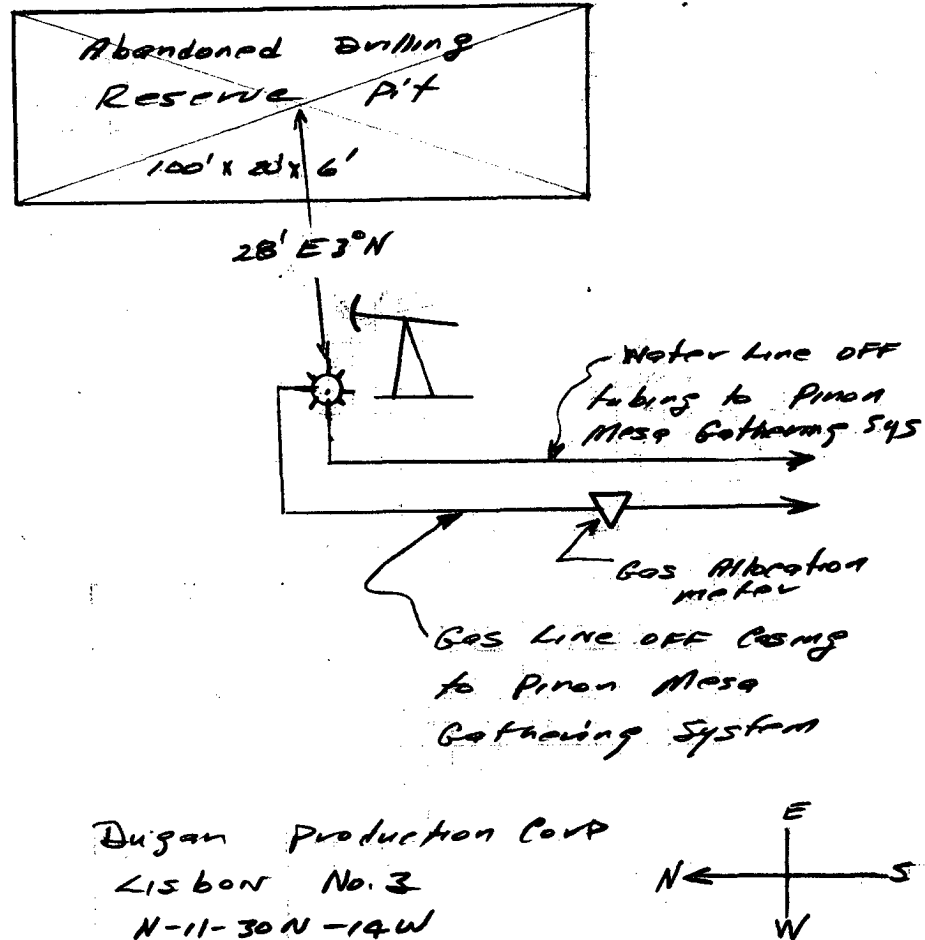 Abandoned Drilling
Reserve Pit
100' x 20' x 6'
28' E 3° N
Water Line OFF
tubing to Pinon
Mesa Gathering Sys
Gas Allocation
meter
Gas Line OFF Casing
to Pinon Mesa
Gathering System
Dugan Production Corp
Lisbon No. 3
N-11-30N-14W
E
N S
W